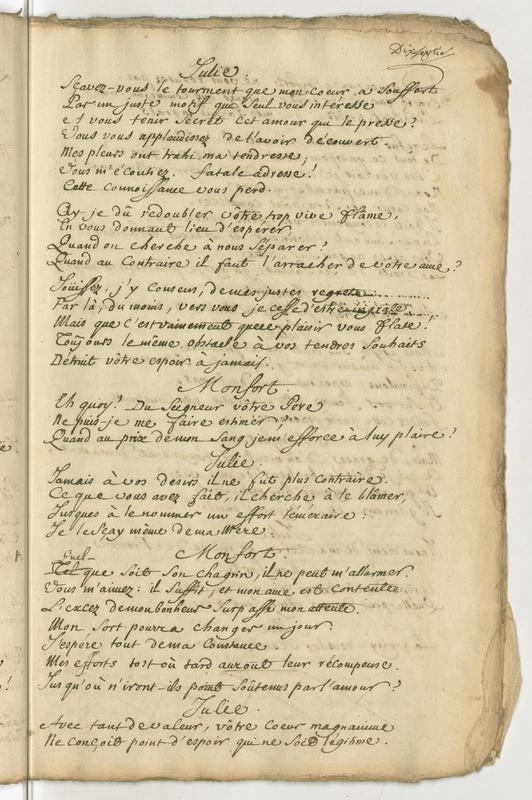 Dixsept
Julie.
Sçavez-vous le tourment que mon coeur a souffert
Par un juste motif que seul vous interesse
et vous tenir secret cet amour qui le presse?
Vous vous applaudissez de l'avoir découvert
Mes pleurs ont trahi ma tendresse;
Vous m'écoutiez. fatale adresse!
Cette connoissance vous perd.
Ay-je dû redoubler vôtre trop vive flâme,
En vous donnant lieu d'espérer
Quand on cherche à nous séparer?
Quand au Contraire il faut l'arracher de vôtre ame?
Joüissez, j'y Consens, demes justes regrets
Par là, du moins, vers vous je cesse d'estre ingrate
Mais que c'est vainement que ce plaisir vous flate.
Toujours le même obstacle à vos tendres souhaits
Détruit vôtre espoir à jamais.
Monfort.
Eh quoy? Du Seigneur vôtre Pere
Ne puis-je me faire estimer?
Quand au prix demon Sang je m'efforce à luy plaire?
Julie.
Jamais à vos desirs il ne fut plus contraire.
Ce que vous avez fait, il cherche à le blâmer,
Jusques à le nommer un effort témeraire:
Je le sçay même de ma Mere.
Monfort.
Quel
Tel que soit son chagrin, il ne peut m'allarmer.
Vous m'aimez: il suffit, et mon ame est contente
L'excez demon bonheur surpasse mon attente.
Mon Sort pourra changer un jour.
J'espére tout de ma Constance.
Mes efforts tost où tard auront leur récompense.
Jusqu'où n'iront-ils point soûtenus par l'amour?
Julie.
Avec tant de valeur, vôtre Coeur magnanime
Ne conçoit point d'espoir qui ne soit légitime.